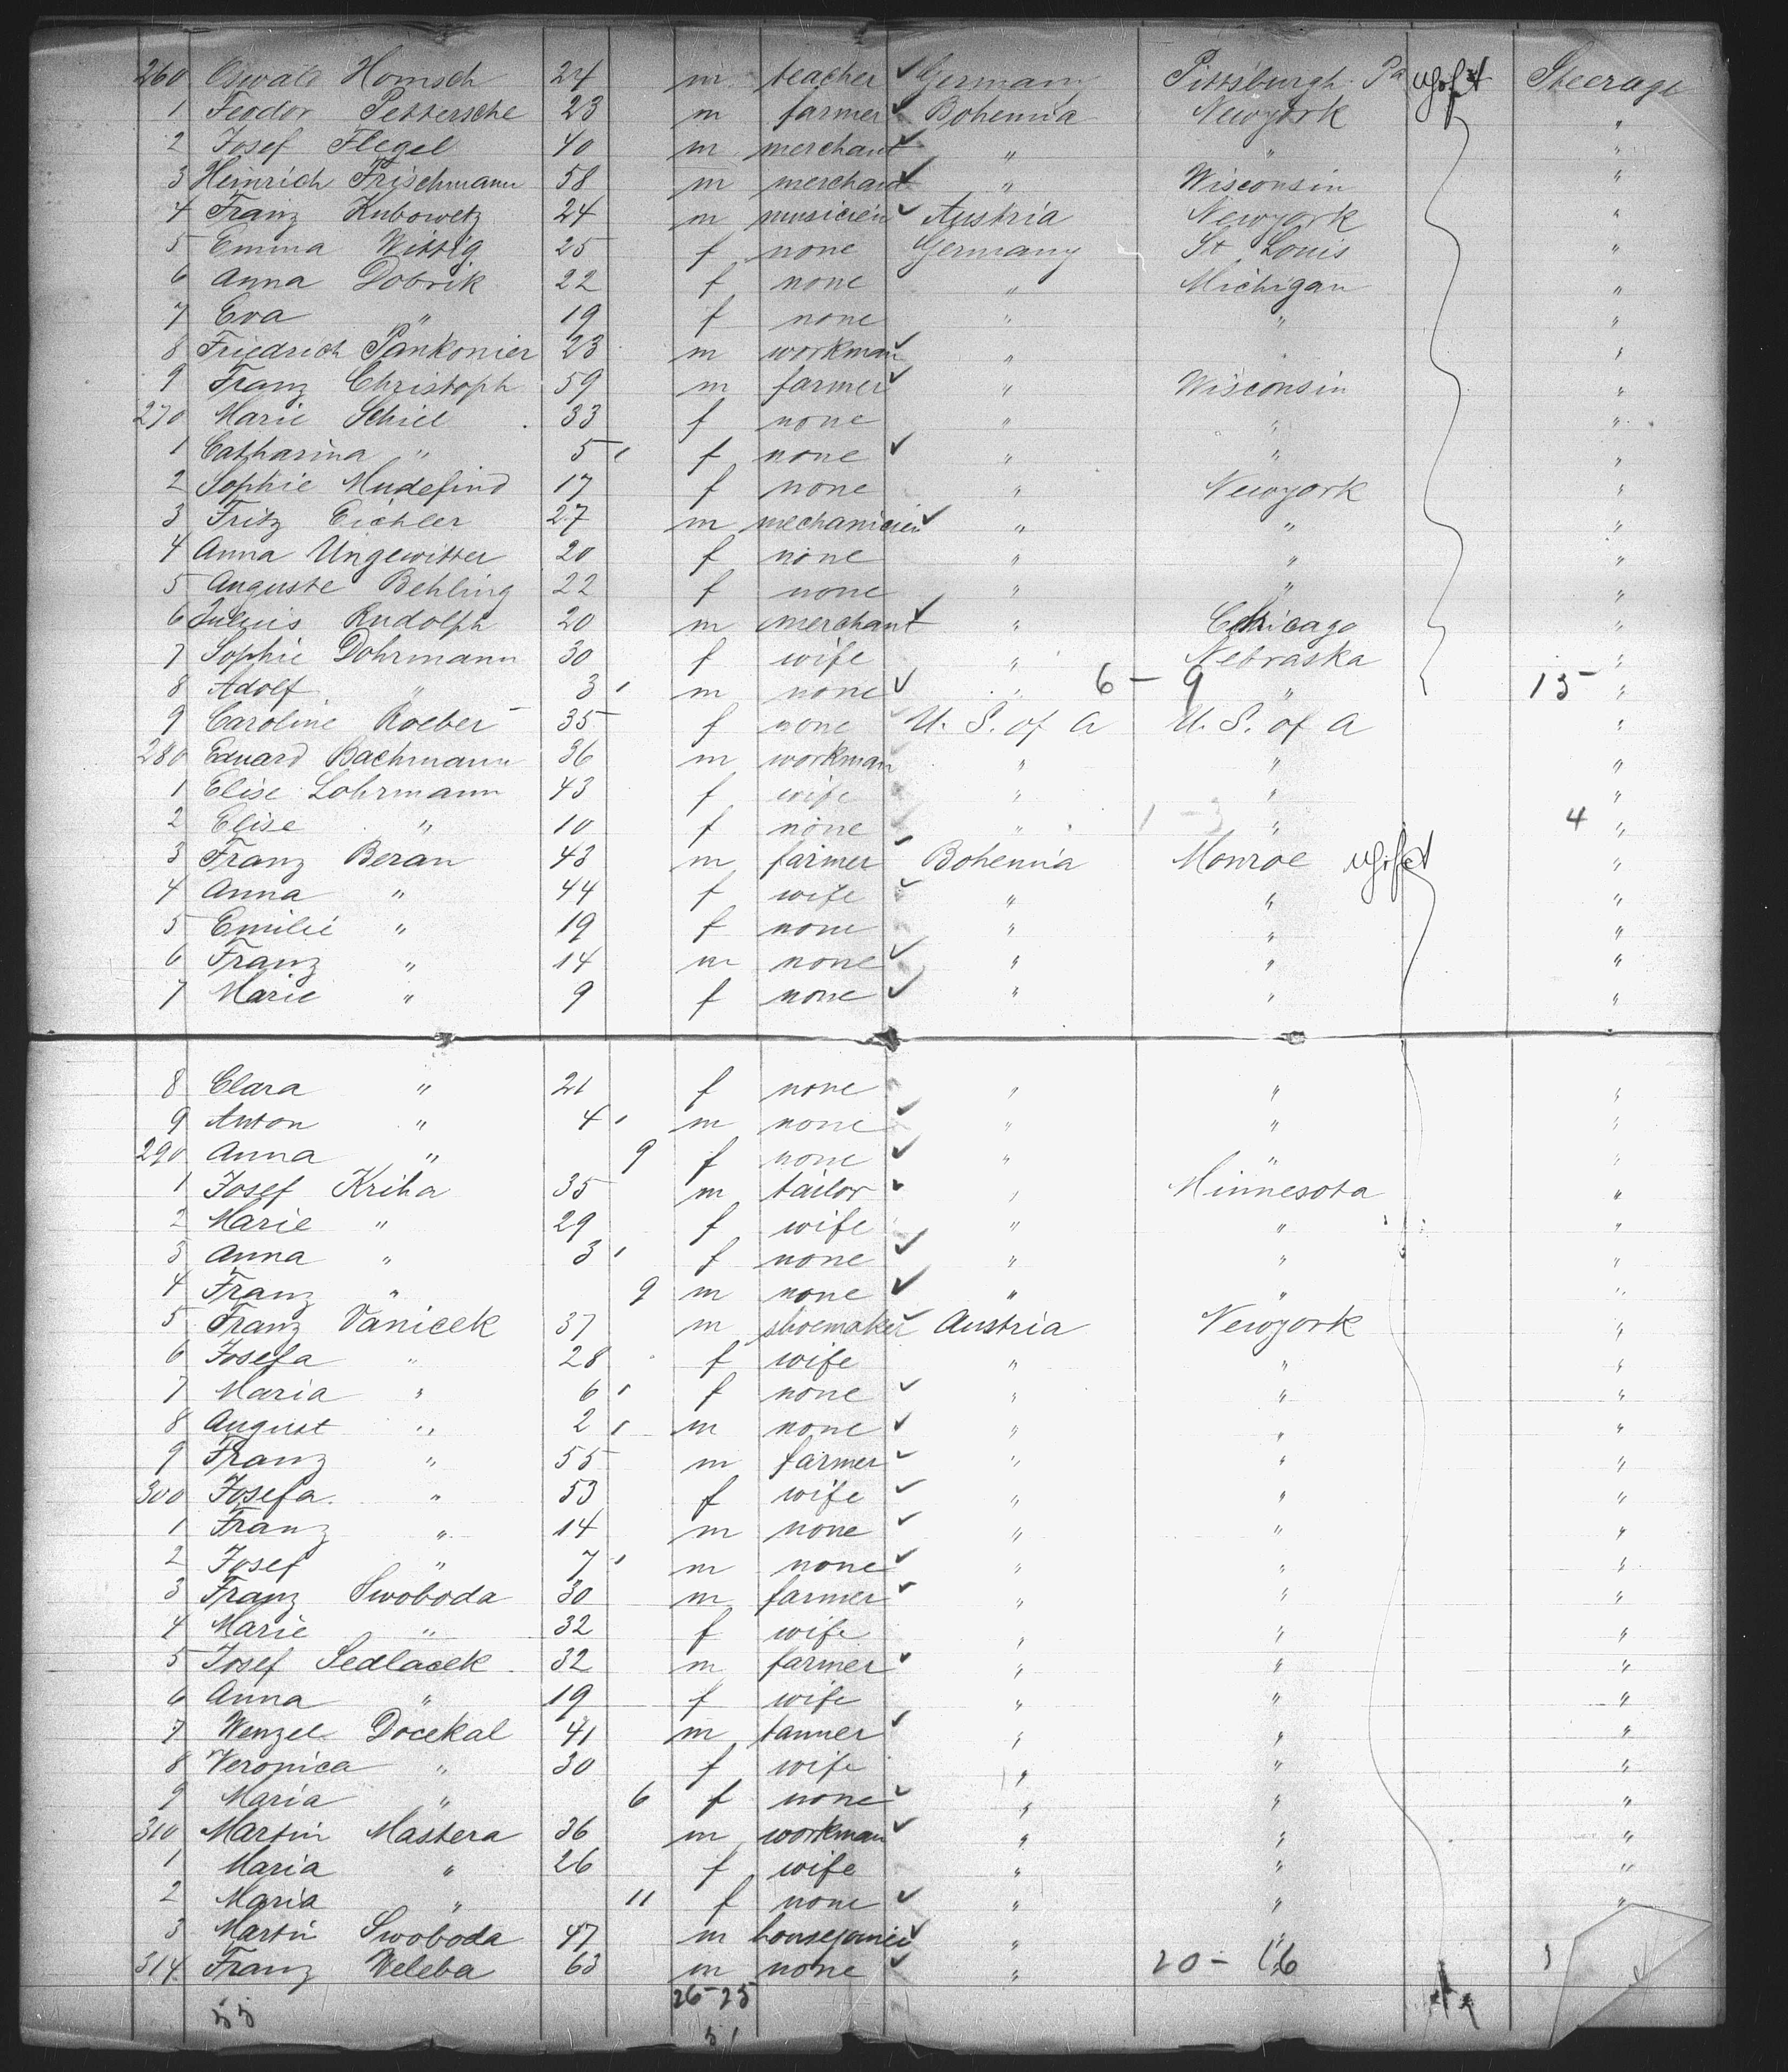 260 Oswald Homsch 24 m teacher ✓ Germany Pittsburgh Pa Steerage
1 Feodor Pettersche 23 m farmer ✓ Bohemia Newyork "
2 Josef Flegel 40 m merchant ✓ " " "
3 Heinrich Frischmann 58 m merchant ✓ " Wisconsin "
4 Franz Kubowetz 24 m musicien ✓ Austria Newyork "
5 Emma Wittig 25 f none Germany St Louis "
6 Anna Dobrik 22 f none " Michigan "
7 Eva " 19 f none " " "
8 Friedrich Pankonier 23 m workman ✓ " " "
9 Franz Christoph 59 m farmer ✓ " Wisconsin "
270 Marie Schiel 33 f none " " "
1 Catharina " 5 f none ✓ " " "
2 Sophie Mudefind 17 f none " Newyork "
3 Fritz Eichler 27 m mechanicien ✓ " " "
4 Anna Ungewitter 20 f none " " "
5 Auguste Behling 22 f none " " "
6 Julius Rudolph 20 m merchant ✓ " Chicago "
7 Sophie Dohrmann 30 f wife " Nebraska "
8 Adolf " 3 m none ✓ " 6 - 9 " 15 "
9 Caroline Roeber 35 f none U. S. of A U. S. of A "
280 Eduard Bachmann 36 m workman " " "
1 Elise Lohrmann 43 f wife " " "
2 Elise " 10 f none " 1 - 3 " 4 "
3 Franz Beran 43 m farmer ✓ Bohemia Monroe "
4 Anna " 44 f wife ✓ " " "
5 Emilie " 19 f none " " "
6 Franz " 14 m none ✓ " " "
7 Marie " 9 f none ✓ " " "
8 Clara " 21 f none " " "
9 Anton " 4 m none ✓ " " "
290 Anna " 9 f none ✓ " " "
1 Josef Kriha 35 m tailor ✓ " Minnesota "
2 Marie " 29 f wife " " "
3 Anna " 3 f none ✓ " " "
4 Franz " 9 m none ✓ " " "
5 Franz Vanicek 37 m shoemaker ✓ Austria Newyork "
6 Josefa " 28 f wife " " "
7 Maria " 6 f none ✓ " " "
8 August " 2 m none ✓ " " "
9 Franz " 55 m farmer ✓ " " "
300 Josefa " 53 f wife ✓ " " "
1 Franz " 14 m none ✓ " " "
2 Josef " 7 m none ✓ " " "
3 Franz Swoboda 30 m farmer ✓ " " "
4 Marie " 32 f wife " " "
5 Josef Sedlacek 32 m farmer ✓ " " "
6 Anna " 19 f wife " " "
7 Wenzel Docekal 41 m tanner ✓ " " "
8 Veronica " 30 f wife " " "
9 Maria " 6 f none ✓ " " "
310 Martin Mastera 36 m workman ✓ " " "
1 Maria " 26 f wife " " "
2 Maria " 11 f none ✓ " " "
3 Martin Swoboda 47 m ✓ " "
314 Franz Veleba 63 m none ✓ " 20 - 16
55 26-25
51